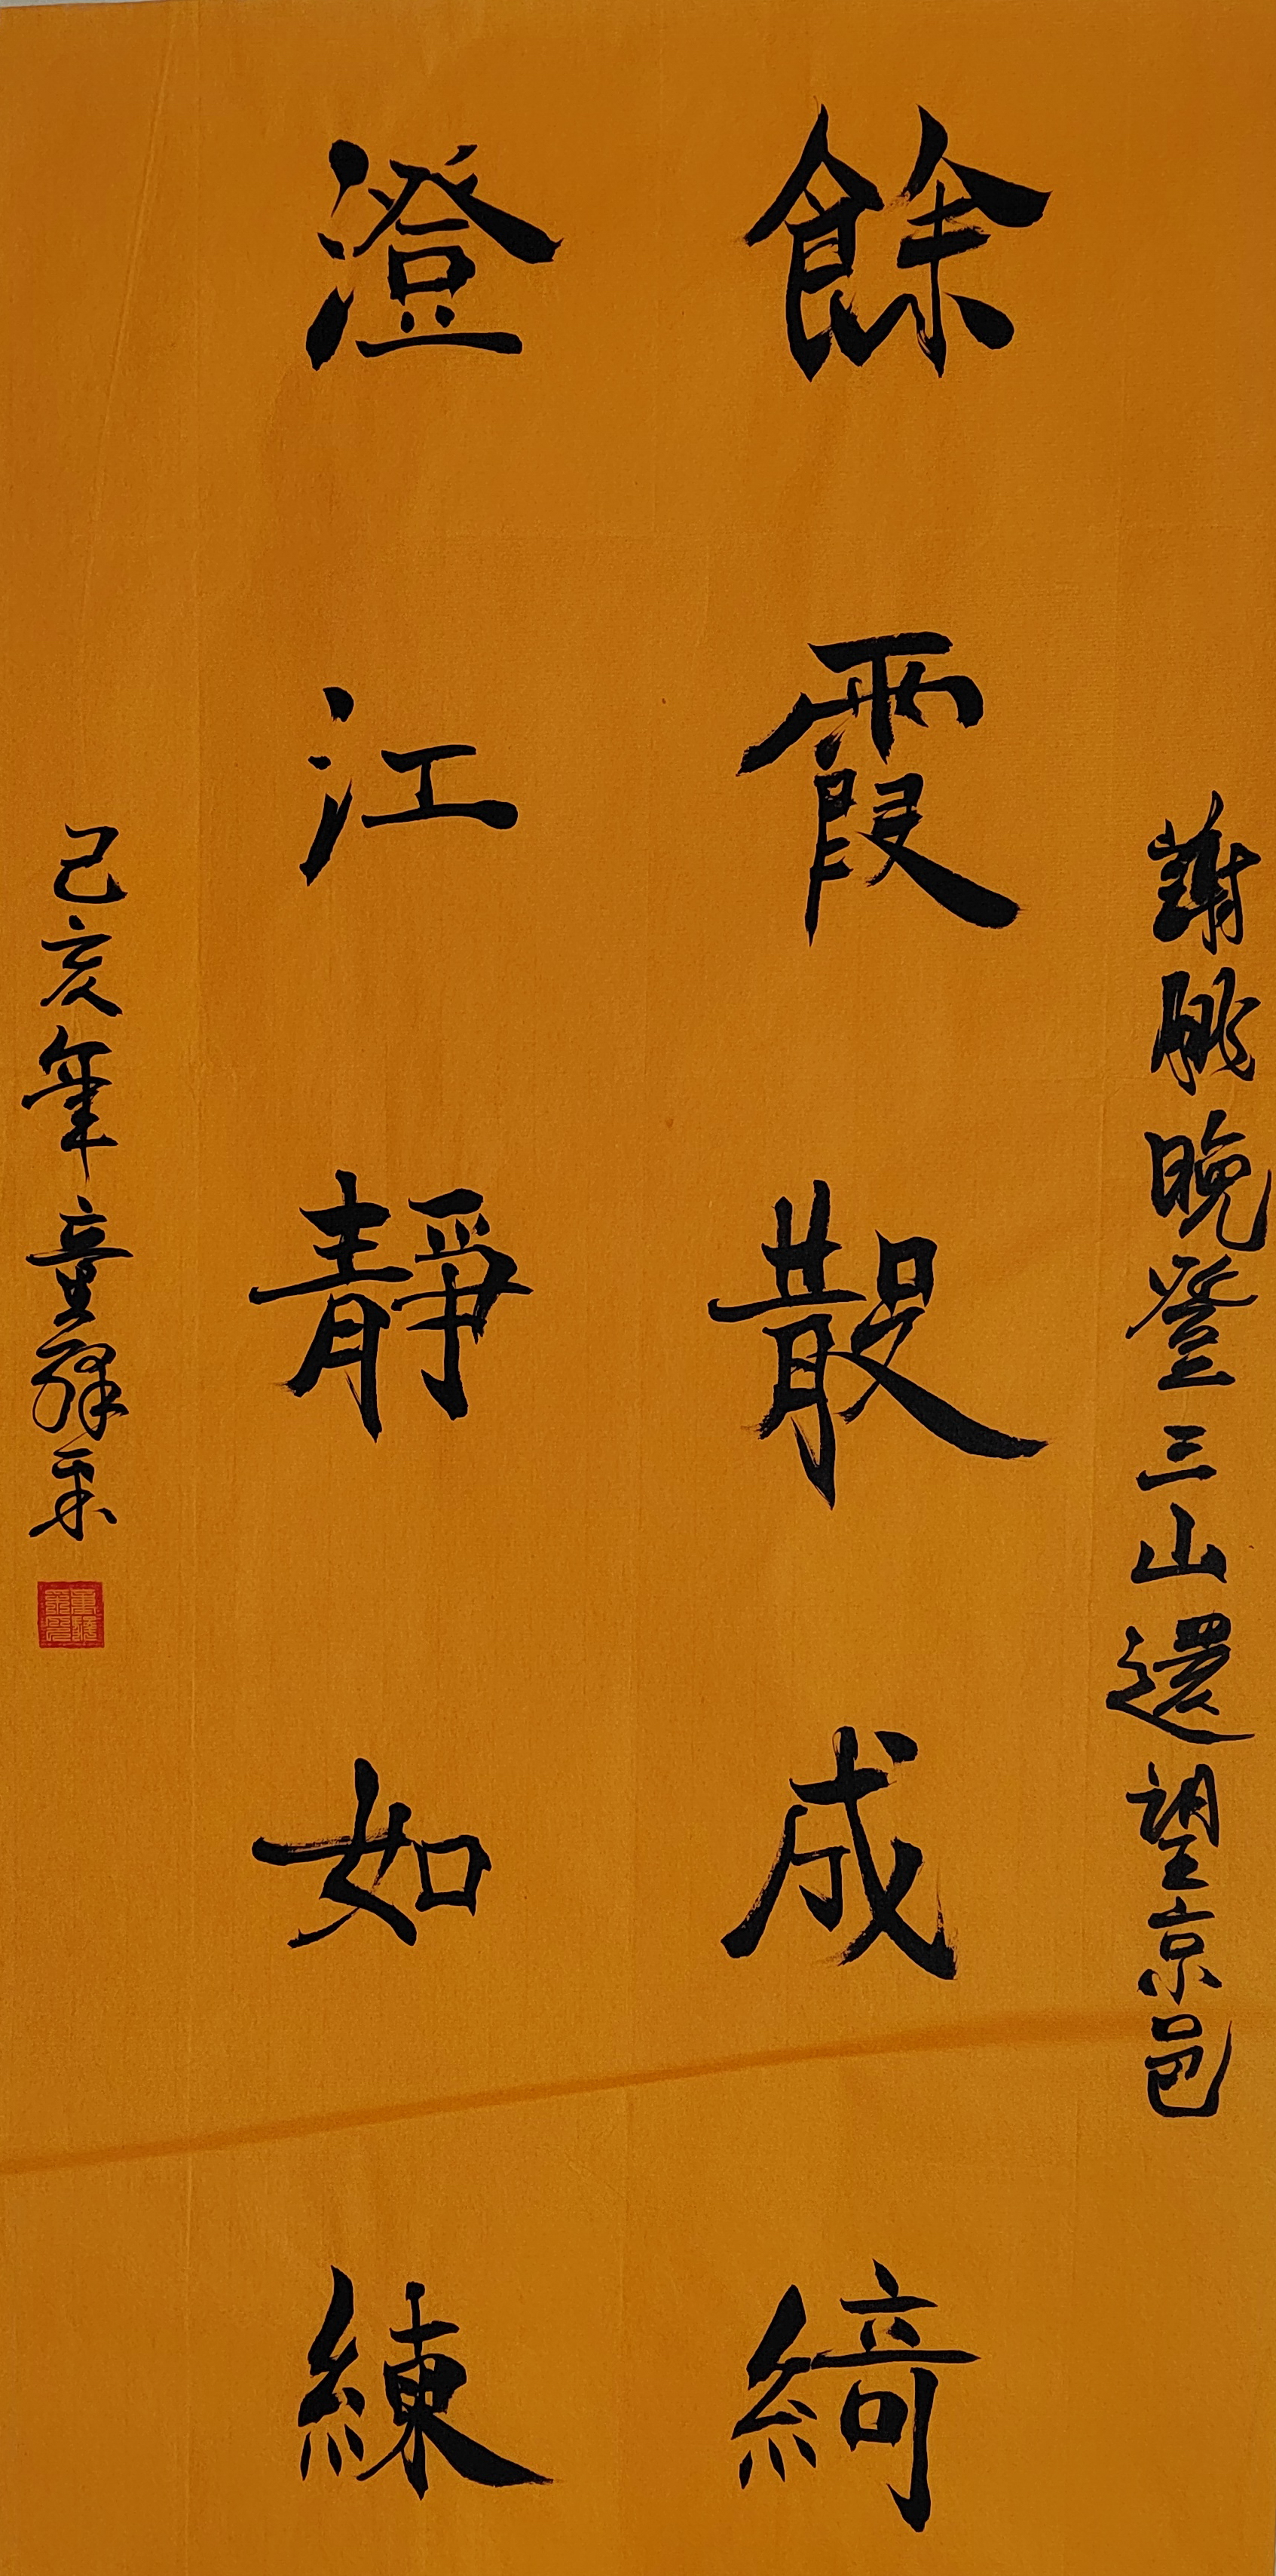 謝朓晚登三山還望京邑
餘霞散成綺
澄江靜如練
己亥年童